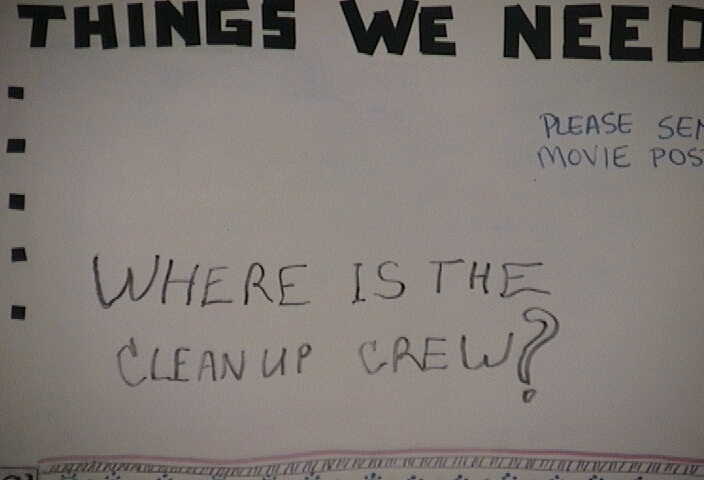 THINGS WE NEED
PLEASE
MOVIE
WHERE IS THE
CLEAN UP CREW?